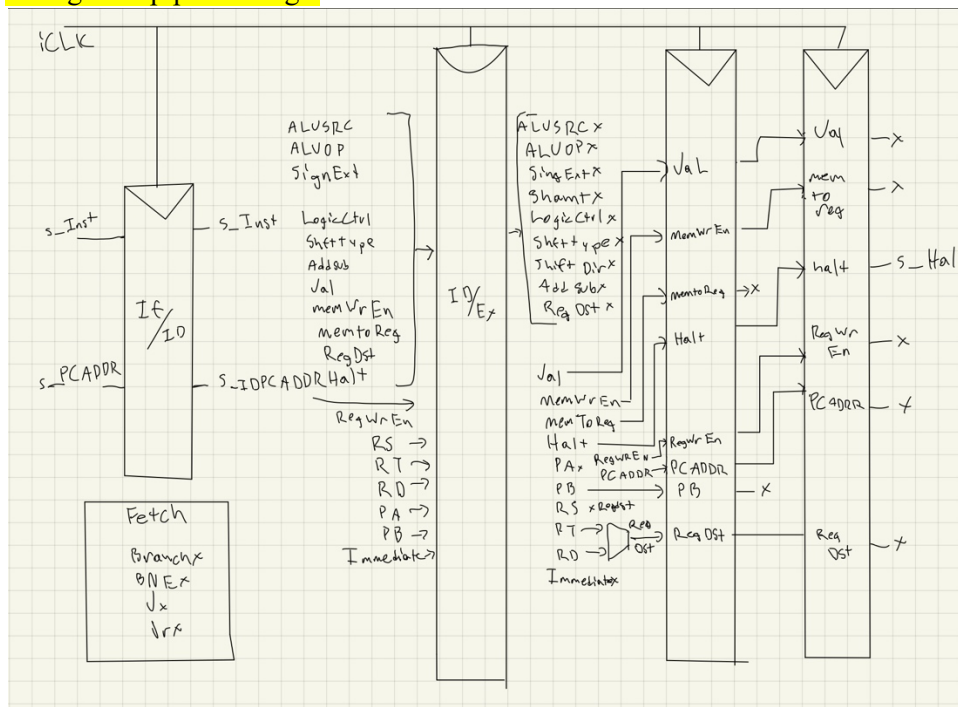 iCLK
s_Inst
s_PCADDR
IF/ID
s_Inst
s_IDPCADDR
Fetch
Branchx
BNEx
Jx
Jrx
ALUSRC
ALUOP
SignExt
LogicCtrl
Shfttype
Addsub
Jal
memWrEn
memtoReg
RegDst
Halt
RegWrEn
RS
RT
RD
PA
PB
Immediate
ID/Ex
ALUSRCx
ALUOPx
SingExtx
Shamtx
LogicCtrlx
Shfttypex
Shift Dirx
Addsubx
RegDstx
Jal
MemWrEn
MemToReg
Halt
PAx
RegWREN
PCADDR
PB
RS x
RT
RD
Reg Dst
Immediatex
JaL
MemWrEn
memtoReg x
Halt
RegWrEn
PCADDR
PB x
RegDst
Jal x
mem to reg x
halt
s_Hal
RegWr En x
PCADDR x
Reg Dst x